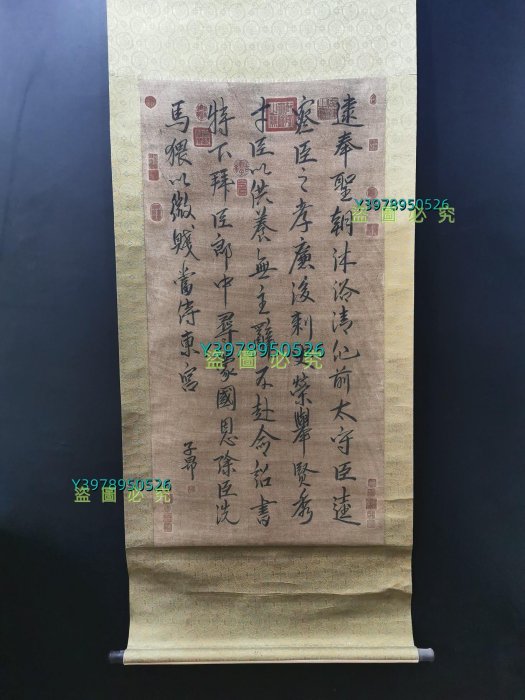 逮奉聖朝沐浴清化前太守臣逵
察臣之孝廉後刺榮舉賢秀
才臣以供養無主辭不赴命詔書
特下拜臣郎中尋蒙國恩除臣洗
馬猥以微賤當侍東宮
子昂
Y3978950526
盜圖必究
Y3978950526
盜圖必究
Y3978950526
盜圖必究